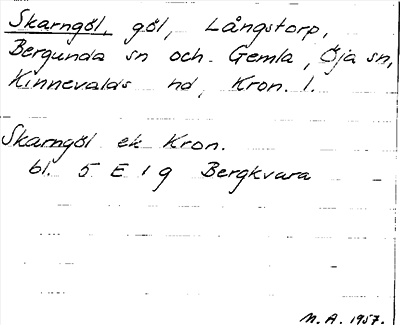 Skarngöl, göl, Långstorp,
Bergunda sn och Gemla, Öja sn,
Kinnevalds hd, Kron. l.
Skarngöl ek Kron.
bl. 5 E 1 g Bergkvara
M. A. 1957.